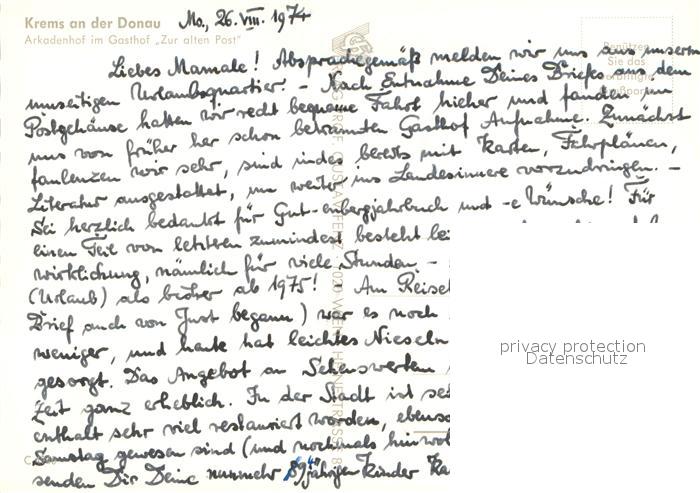 Krems an der Donau
Arkadenhof im Gasthof „Zur alten Post"
Mo., 26. VIII. 1974
Benützen Sie das
Liebes Mamale! Absprachegemäß melden wir uns aus unserm
umseitigen Urlaubsquartier. – Nach Entnahme Deines Briefes aus dem
Postgehäuse hatten wir recht bequeme Fahrt hieher und fanden im
uns von früher her schon bekannten Gasthof Aufnahme. Zunächst
faulenzen wir sehr, sind indes bereits mit Karten, Fahrplänen,
Literatur ausgestattet, um weiter ins Landesinnere vorzudringen. –
Sei herzlich bedankt für Gutenbergjahrbuch und -e Wünsche! Für
einen Teil von letzteren zumindest besteht
wirklichung, nämlich für viele Stunden –
(Urlaub) als bisher ab 1975! Am Reise
Brief auch von Just begann) war es noch
weniger, und heute hat leichtes Nieseln
gesorgt. Das Angebot an Sehenswertem
Zeit ganz erheblich. In der Stadt ist
enthalt sehr viel restauriert worden,
Samstag gewesen sind (und nochmals
senden Dir Deine nunmehr 89jährigen Kinder
privacy protection
Datenschutz